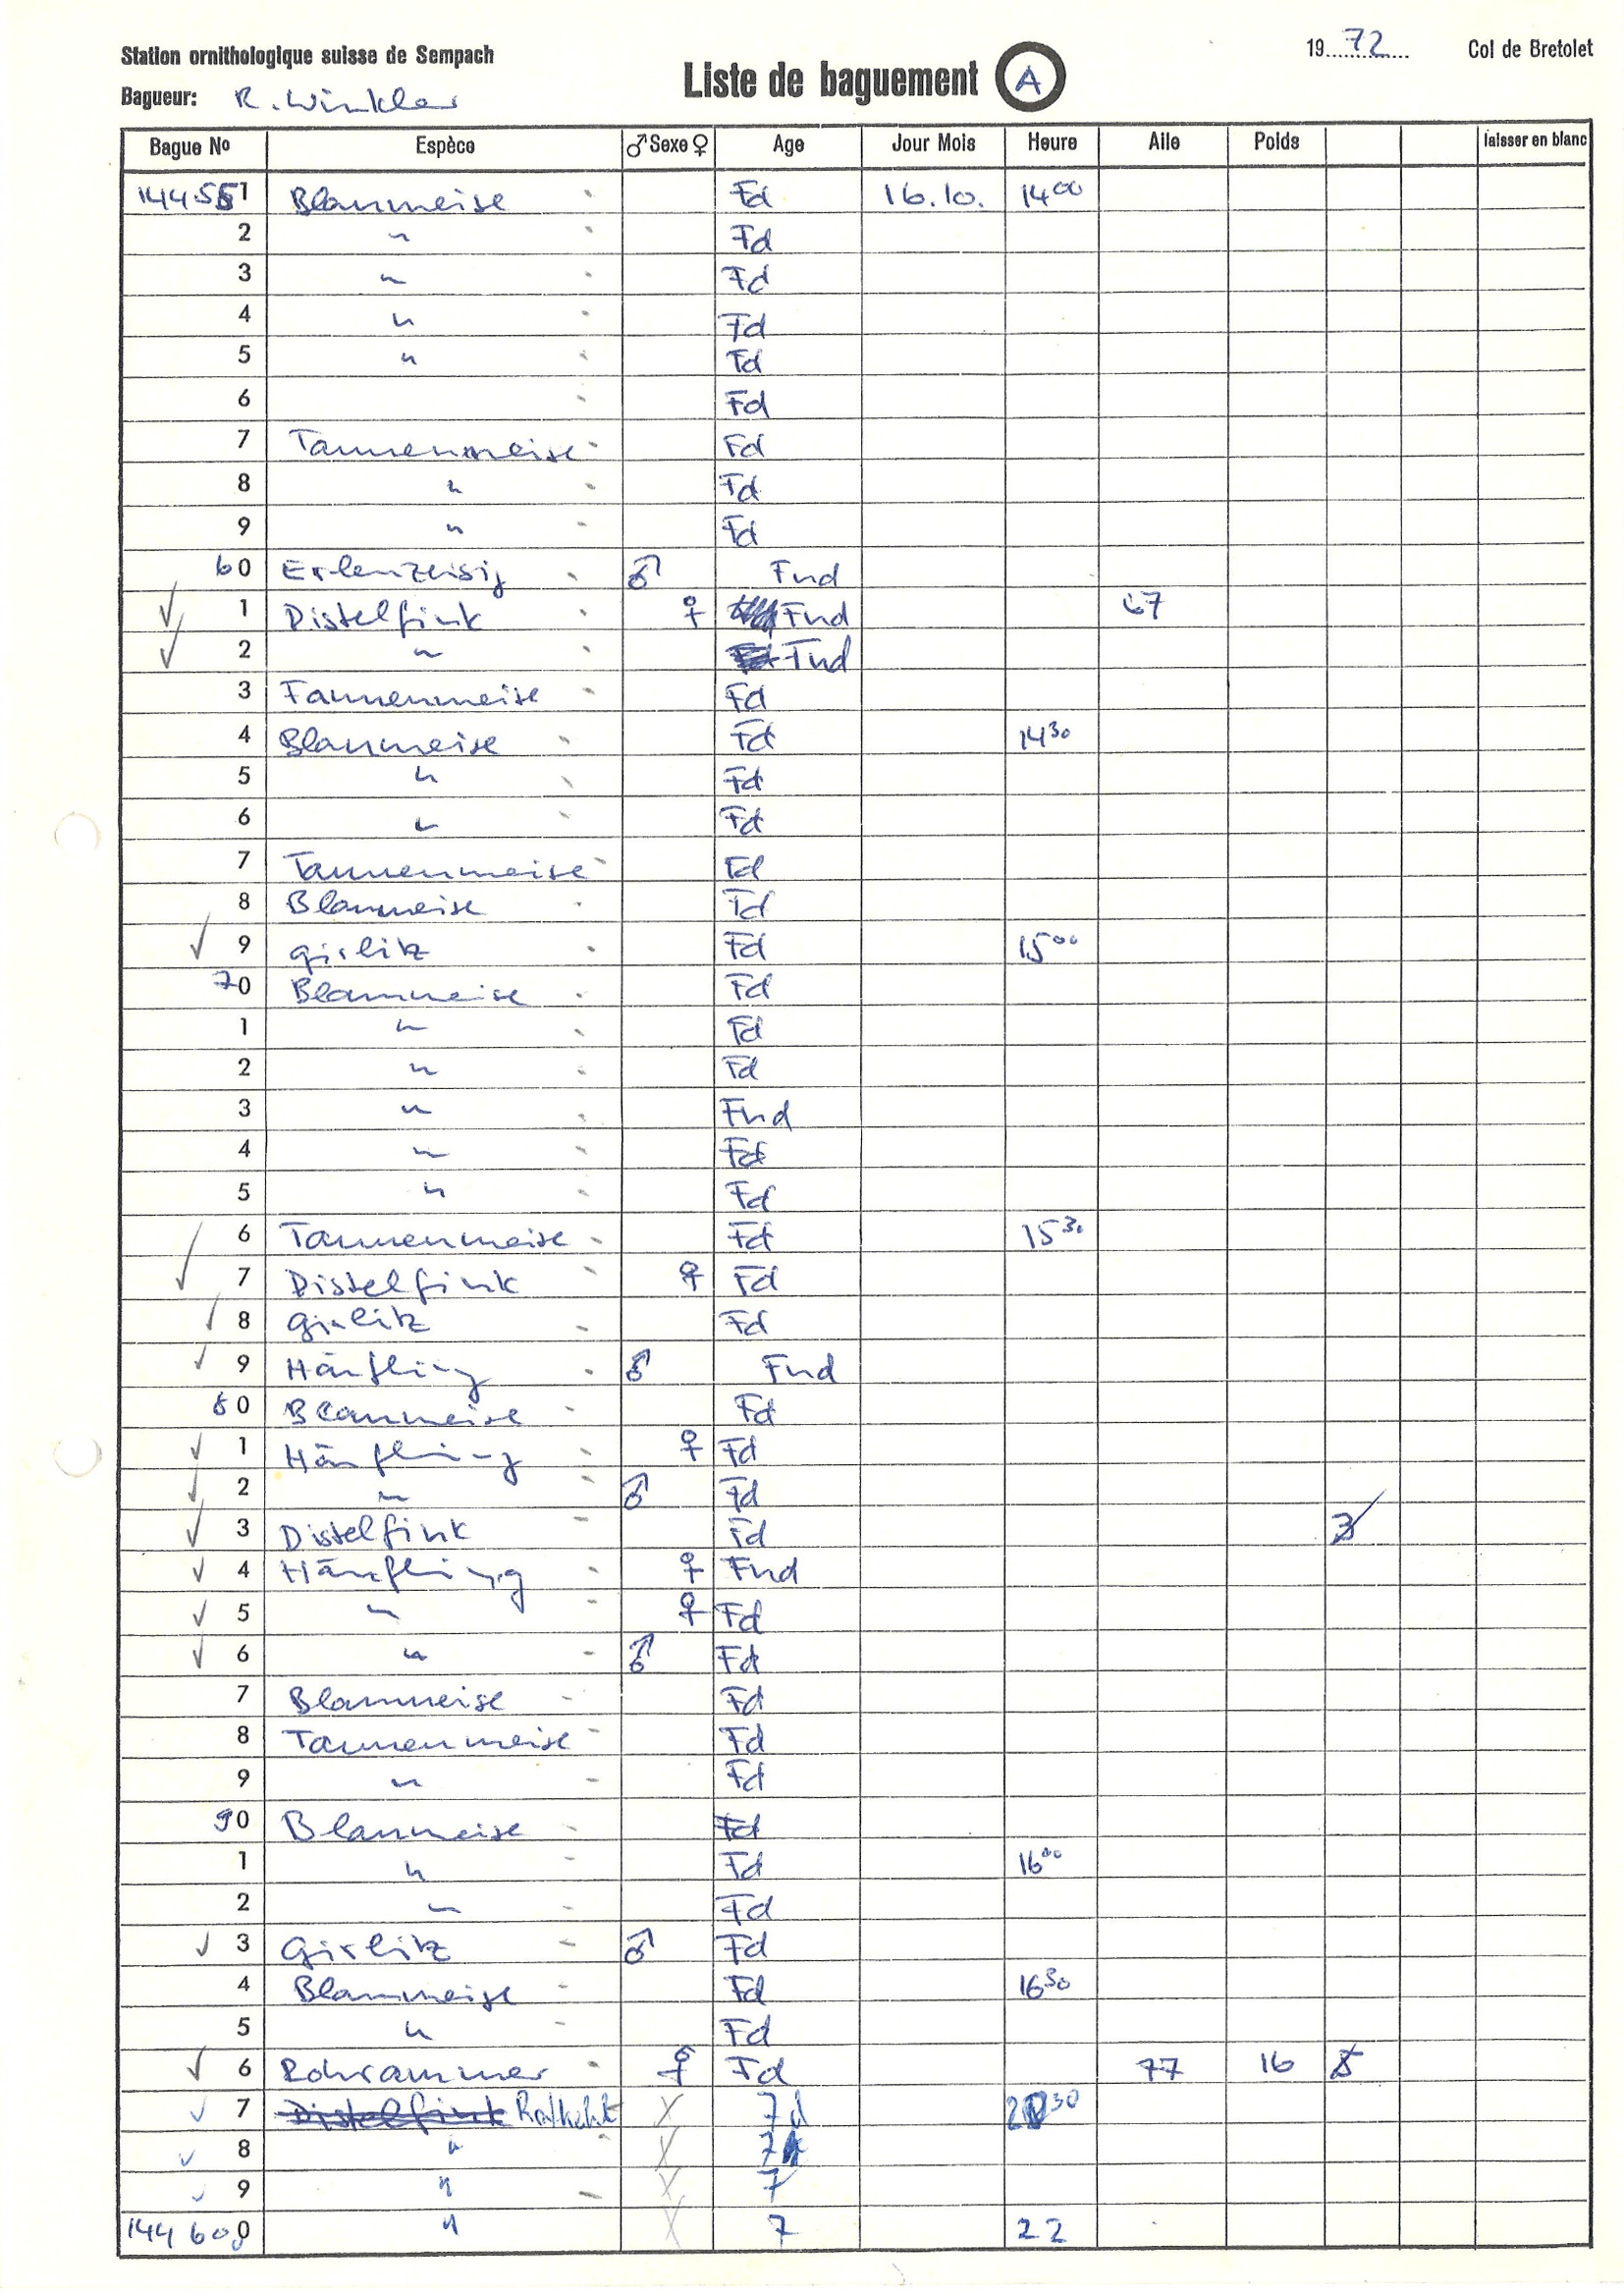 Station ornithologique suisse de Sempach
Bagueur: R. Winkler
Liste de baguement A
19 72 Col de Bretolet
Bague No Espèce ♂ Sexe ♀ Age Jour Mois Heure Aile Poids laisser en blanc
144551 Blaumeise Fd 16.10. 14 00
2 " Fd
3 " Fd
4 " Fd
5 " Fd
6 Fd
7 Tannenmeise Fd
8 " Fd
9 " Fd
60 Erlenzeisig ♂ Fnd
1 Distelfink ♀ Fnd 67
2 " Fnd
3 Tannenmeise Fd
4 Blaumeise Fd 14 30
5 " Fd
6 " Fd
7 Tannenmeise Fd
8 Blaumeise Fd
9 Girlitz Fd 15 00
70 Blaumeise Fd
1 " Fd
2 " Fd
3 " Fnd
4 " Fd
5 " Fd
6 Tannenmeise Fd 15 30
7 Distelfink ♀ Fd
8 Girlitz Fd
9 Hänfling ♂ Fnd
80 Blaumeise Fd
1 Hänfling ♀ Fd
2 " ♂ Fd
3 Distelfink Fd 3
4 Hänfling ♀ Fnd
5 " ♀ Fd
6 " ♂ Fd
7 Blaumeise Fd
8 Tannenmeise Fd
9 " Fd
90 Blaumeise Fd
1 " Fd 16 00
2 " Fd
3 Girlitz ♂ Fd
4 Blaumeise Fd 16 30
5 " Fd
6 Rohrammer ♀ Fd 77 16
7 Distelfink Rotkehl 7d 30
8 " 7
9 " 7
144600 " 7 22